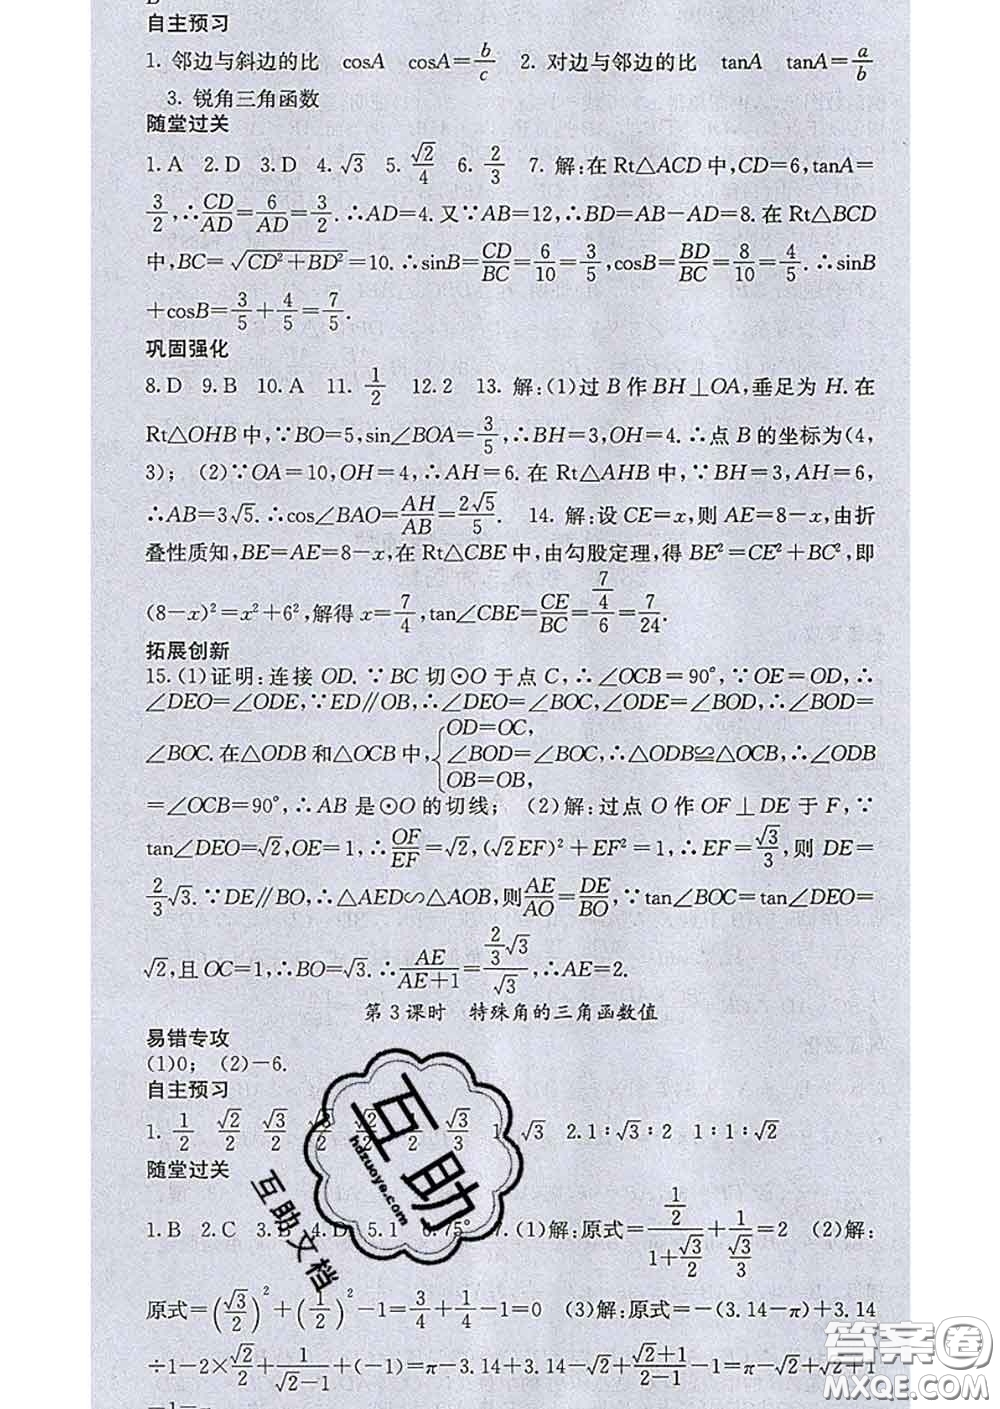 自主预习
1. 邻边与斜边的比 cosA cosA=b/c 2. 对边与邻边的比 tanA tanA=a/b
3. 锐角三角函数
随堂过关
1. A 2. D 3. D 4. √3 5. √2/4 6. 2/3 7. 解:在Rt△ACD中,CD=6,tanA=
3/2,∴CD/AD=6/AD=3/2.∴AD=4.又∵AB=12,∴BD=AB-AD=8.在Rt△BCD
中,BC=√(CD²+BD²)=10.∴sinB=CD/BC=6/10=3/5,cosB=BD/BC=8/10=4/5.∴sinB
+cosB=3/5+4/5=7/5.
巩固强化
8. D 9. B 10. A 11. 1/2 12. 2 13. 解:(1)过B作BH⊥OA,垂足为H.在
Rt△OHB中,∵BO=5,sin∠BOA=3/5,∴BH=3,OH=4.∴点B的坐标为(4,
3); (2)∵OA=10,OH=4,∴AH=6.在Rt△AHB中,∵BH=3,AH=6,
∴AB=3√5.∴cos∠BAO=AH/AB=2√5/5. 14. 解:设CE=x,则AE=8-x,由折
叠性质知,BE=AE=8-x,在Rt△CBE中,由勾股定理,得BE²=CE²+BC²,即
(8-x)²=x²+6²,解得x=7/4,tan∠CBE=CE/BC=(7/4)/6=7/24.
拓展创新
15. (1)证明:连接OD.∵BC切⊙O于点C,∴∠OCB=90°,∵OE=OD,∴
∠DEO=∠ODE,∵ED∥OB,∴∠DEO=∠BOC,∠ODE=∠BOD,∴∠BOD=
∠BOC.在△ODB和△OCB中,{OD=OC, ∠BOD=∠BOC, OB=OB, ∴△ODB≌△OCB,∴∠ODB
=∠OCB=90°,∴AB是⊙O的切线; (2)解:过点O作OF⊥DE于F,∵
tan∠DEO=√2,OE=1,∴OF/EF=√2,(√2EF)²+EF²=1,∴EF=√3/3,则DE=
2/3√3.∵DE∥BO,∴△AED∽△AOB,则AE/AO=DE/BO,∵tan∠BOC=tan∠DEO=
√2,且OC=1,∴BO=√3.∴AE/(AE+1)=(2/3√3)/√3,∴AE=2.
第3课时 特殊角的三角函数值
易错专攻
(1)0; (2)-6.
自主预习
1. 1/2 √2/2 √3/2 √3/2 √2/2 /2 √3/3 1 √3 2. 1∶√3∶2 1∶1∶√2
随堂过关
1. B 2. C 3. B 4. D 5. 1 6. 75° 7. (1)解:原式=(1/2)/(1+√3/2)+1/(√3/3)=2 (2)解:
原式=(√3/2)²+(1/2)²-1=3/4+1/4-1=0 (3)解:原式=-(3.14-π)+3.14
÷1-2×√2/2+1/(√2-1)+(-1)=π-3.14+3.14-√2+(√2+1)/(2-1)-1=π-√2+√2+1
互助
hdzuoye.com
互助文档
答案圈
MXQE.COM